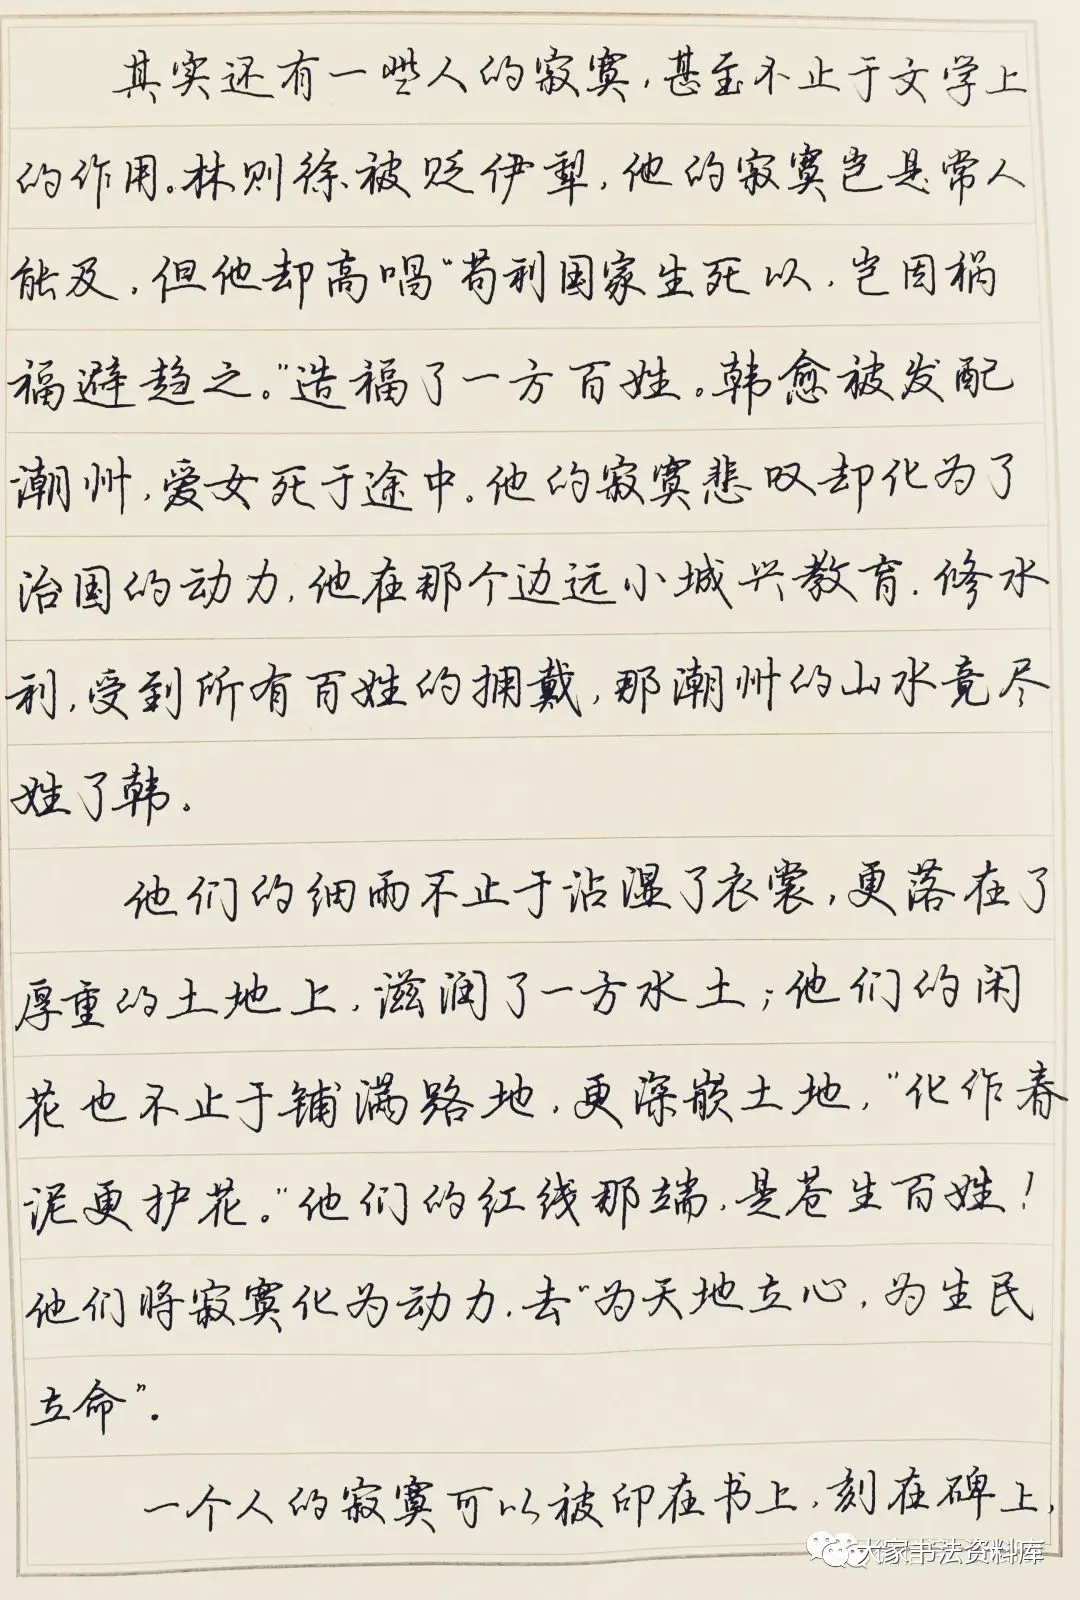 其实还有一些人的寂寞，甚至不止于文学上
的作用。林则徐被贬伊犁，他的寂寞岂是常人
能及，但他却高唱“苟利国家生死以，岂因祸
福避趋之。”造福了一方百姓。韩愈被发配
潮州，爱女死于途中。他的寂寞悲叹却化为了
治国的动力，他在那个边远小城兴教育，修水
利，受到所有百姓的拥戴，那潮州的山水竟尽
姓了韩。
他们的细雨不止于沾湿了衣裳，更落在了
厚重的土地上，滋润了一方水土；他们的闲
花也不止于铺满路地，更深嵌土地，“化作春
泥更护花。”他们的红线那端，是苍生百姓！
他们将寂寞化为动力，去“为天地立心，为生民
立命”。
一个人的寂寞可以被印在书上，刻在碑上，
大家书法资料库